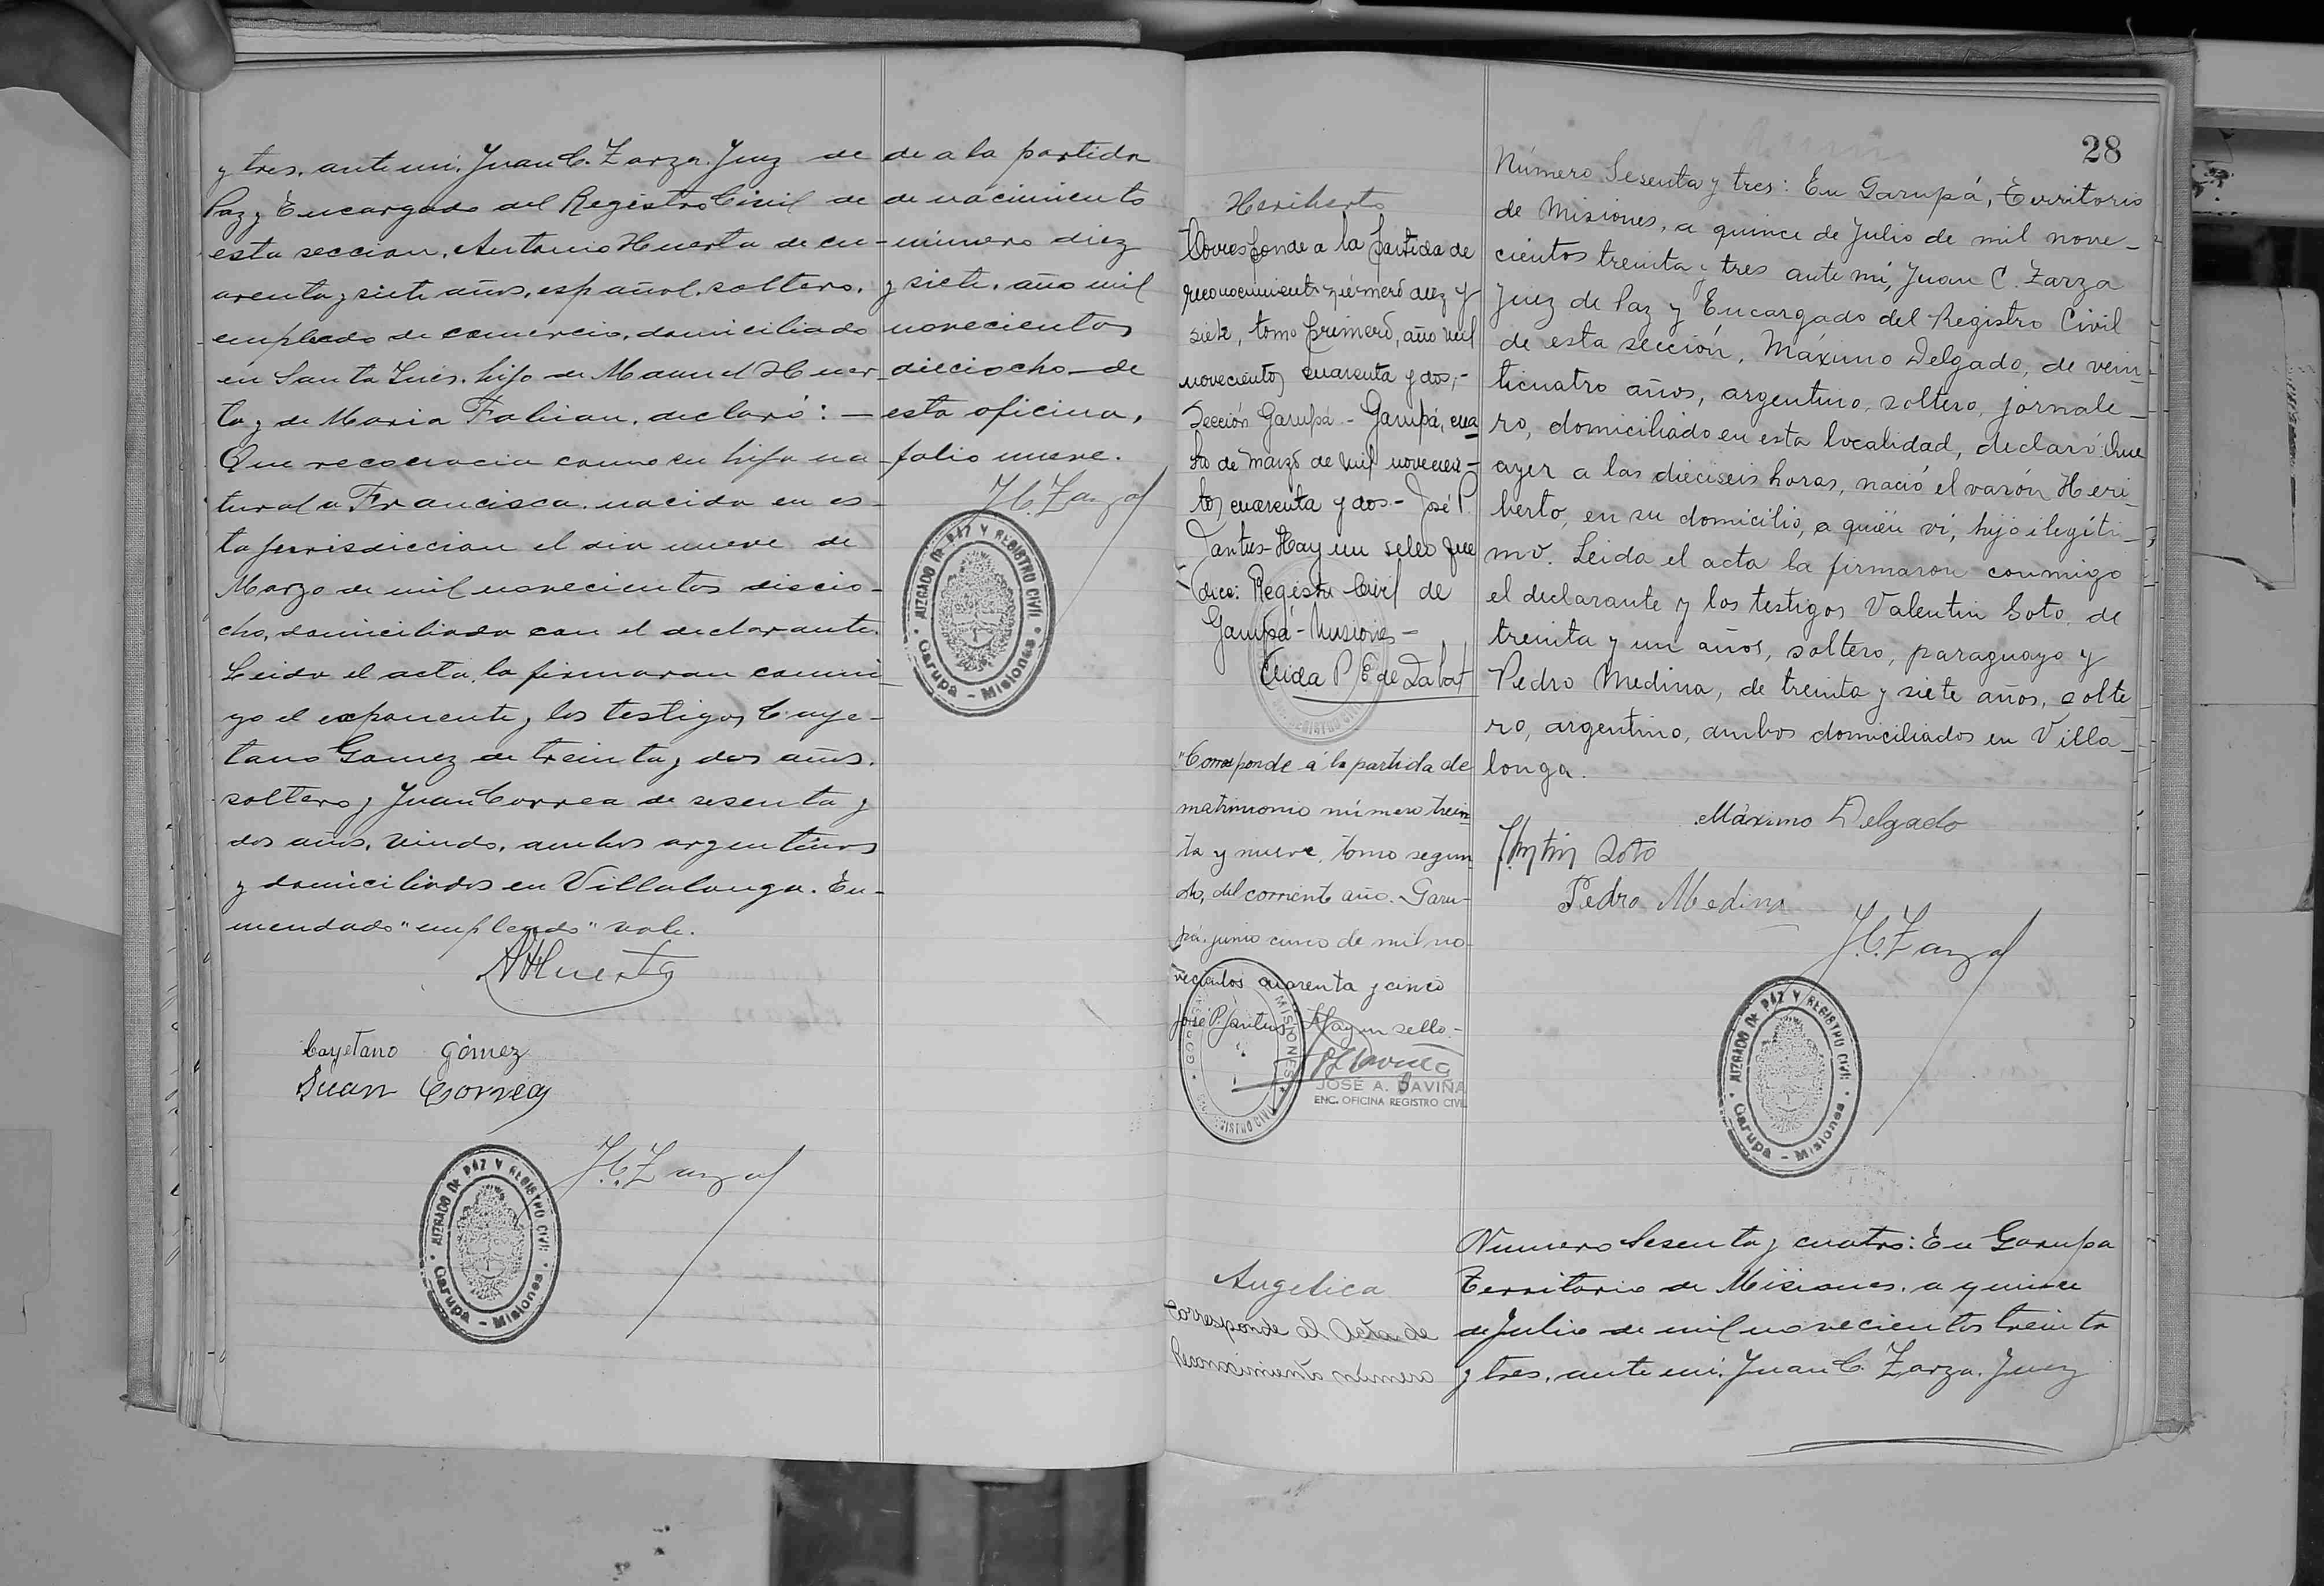 y tres. ante mi. Juan C. Zarza. Juez de
Paz y Encargado del Registro Civil de
esta seccion. Antonio Huerta de cu-
arenta y siete años. español. soltero.
empleado de comercio. domiciliado
en Santa Inés. hijo de Manuel Huer-
ta y de Maria Fabian. declaró: —
Que reconocia como su hija na-
tural a Francisca. nacida en es-
ta jurisdiccion el dia nueve de
Marzo de mil novecientos diecio-
cho, domiciliada con el declarante.
Leida el acta, la firmaron conmi-
go el exponente y los testigos Caye-
tano Gomez de treinta y dos años.
soltero y Juan Correa de sesenta y
dos años. viudo. ambos argentinos
y domiciliados en Villalonga. En-
mendado "empleado" vale.
AHuerta
Cayetano Gómez
Juan Correa
J.C. Zarza
JUZGADO DE PAZ Y REGISTRO CIVIL
Garupá - Misiones
de a la partida
de nacimiento
número diez
y siete. año mil
novecientos
dieciocho de
esta oficina,
folio nueve.
J.C. Zarza
JUZGADO DE PAZ Y REGISTRO CIVIL
Garupá - Misiones
28
Heriberto
Corresponde a la partida de
reconocimiento número diez y
siete, tomo primero, año mil
novecientos cuarenta y dos,-
Sección Garupá - Garupá, cua
tro de marzo de mil novecien-
tos cuarenta y dos - José P.
Jantus - Hay un sello que
dice: Registro Civil de
Garupá - Misiones -
"Corresponde á la partida de
matrimonio número trein
ta y nueve, tomo segun
do, del corriente año. Garu-
pá. junio cinco de mil no-
vecientos cuarenta y cinco
José P. Jantus Hay un sello.-
JOSÉ A. DAVIÑA
ENC. OFICINA REGISTRO CIVIL
Número Sesenta y tres: En Garupá, Territorio
de Misiones, a quince de Julio de mil nove-
cientos treinta y tres ante mí, Juan C. Zarza
Juez de Paz y Encargado del Registro Civil
de esta sección, Máximo Delgado, de vein-
ticuatro años, argentino, soltero, jornale-
ro, domiciliado en esta localidad, declaró: Que
ayer a las dieciseis horas, nació el varón Heri-
berto, en su domicilio, a quién ví, hijo ilegíti-
mo. Leida el acta la firmaron conmigo
el declarante y los testigos Valentin Soto, de
treinta y un años, soltero, paraguayo y
Pedro Medina, de treinta y siete años, solte
ro, argentino, ambos domiciliados en Villa-
longa.
Máximo Delgado
Soto
Pedro Medina
J.C. Zarza
JUZGADO DE PAZ Y REGISTRO CIVIL
Garupá - Misiones
Angelica
Corresponde al Acta de
Reconocimiento número
Numero Sesenta y cuatro: En Garupa
Territorio de Misiones. a quince
de Julio de mil novecientos treinta
y tres. ante mi. Juan C. Zarza. Juez